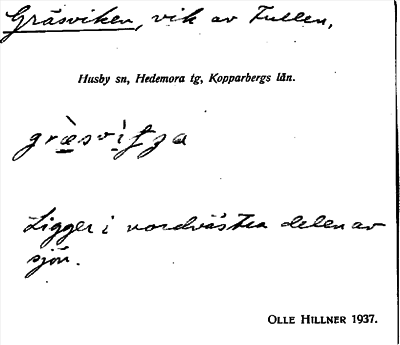 Gräsviken, vik av Fullen,
Husby sn, Hedemora tg, Kopparbergs län.
Ligger i nordvästra delen av
sjön.
OLLE HILLNER 1937.